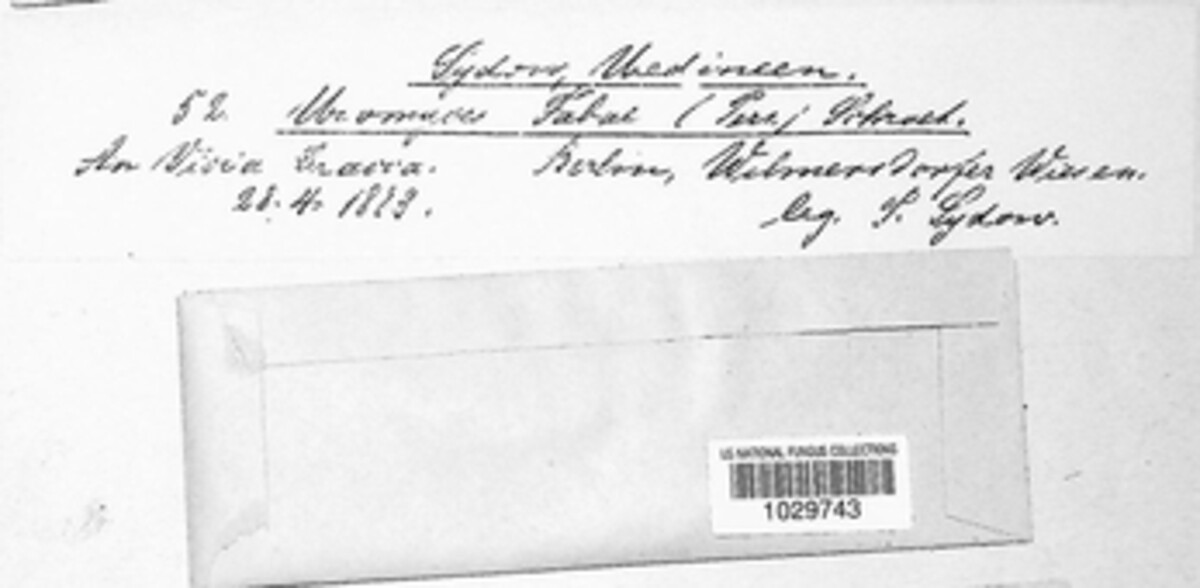 Sydow, Uredineen.
52. Uromyces Fabae (Pers.) Schroet.
An Vicia Cracca. Berlin, Wilmersdorfer Wiesen.
28. 4. 1889. leg. P. Sydow.
US NATIONAL FUNGUS COLLECTIONS
1029743